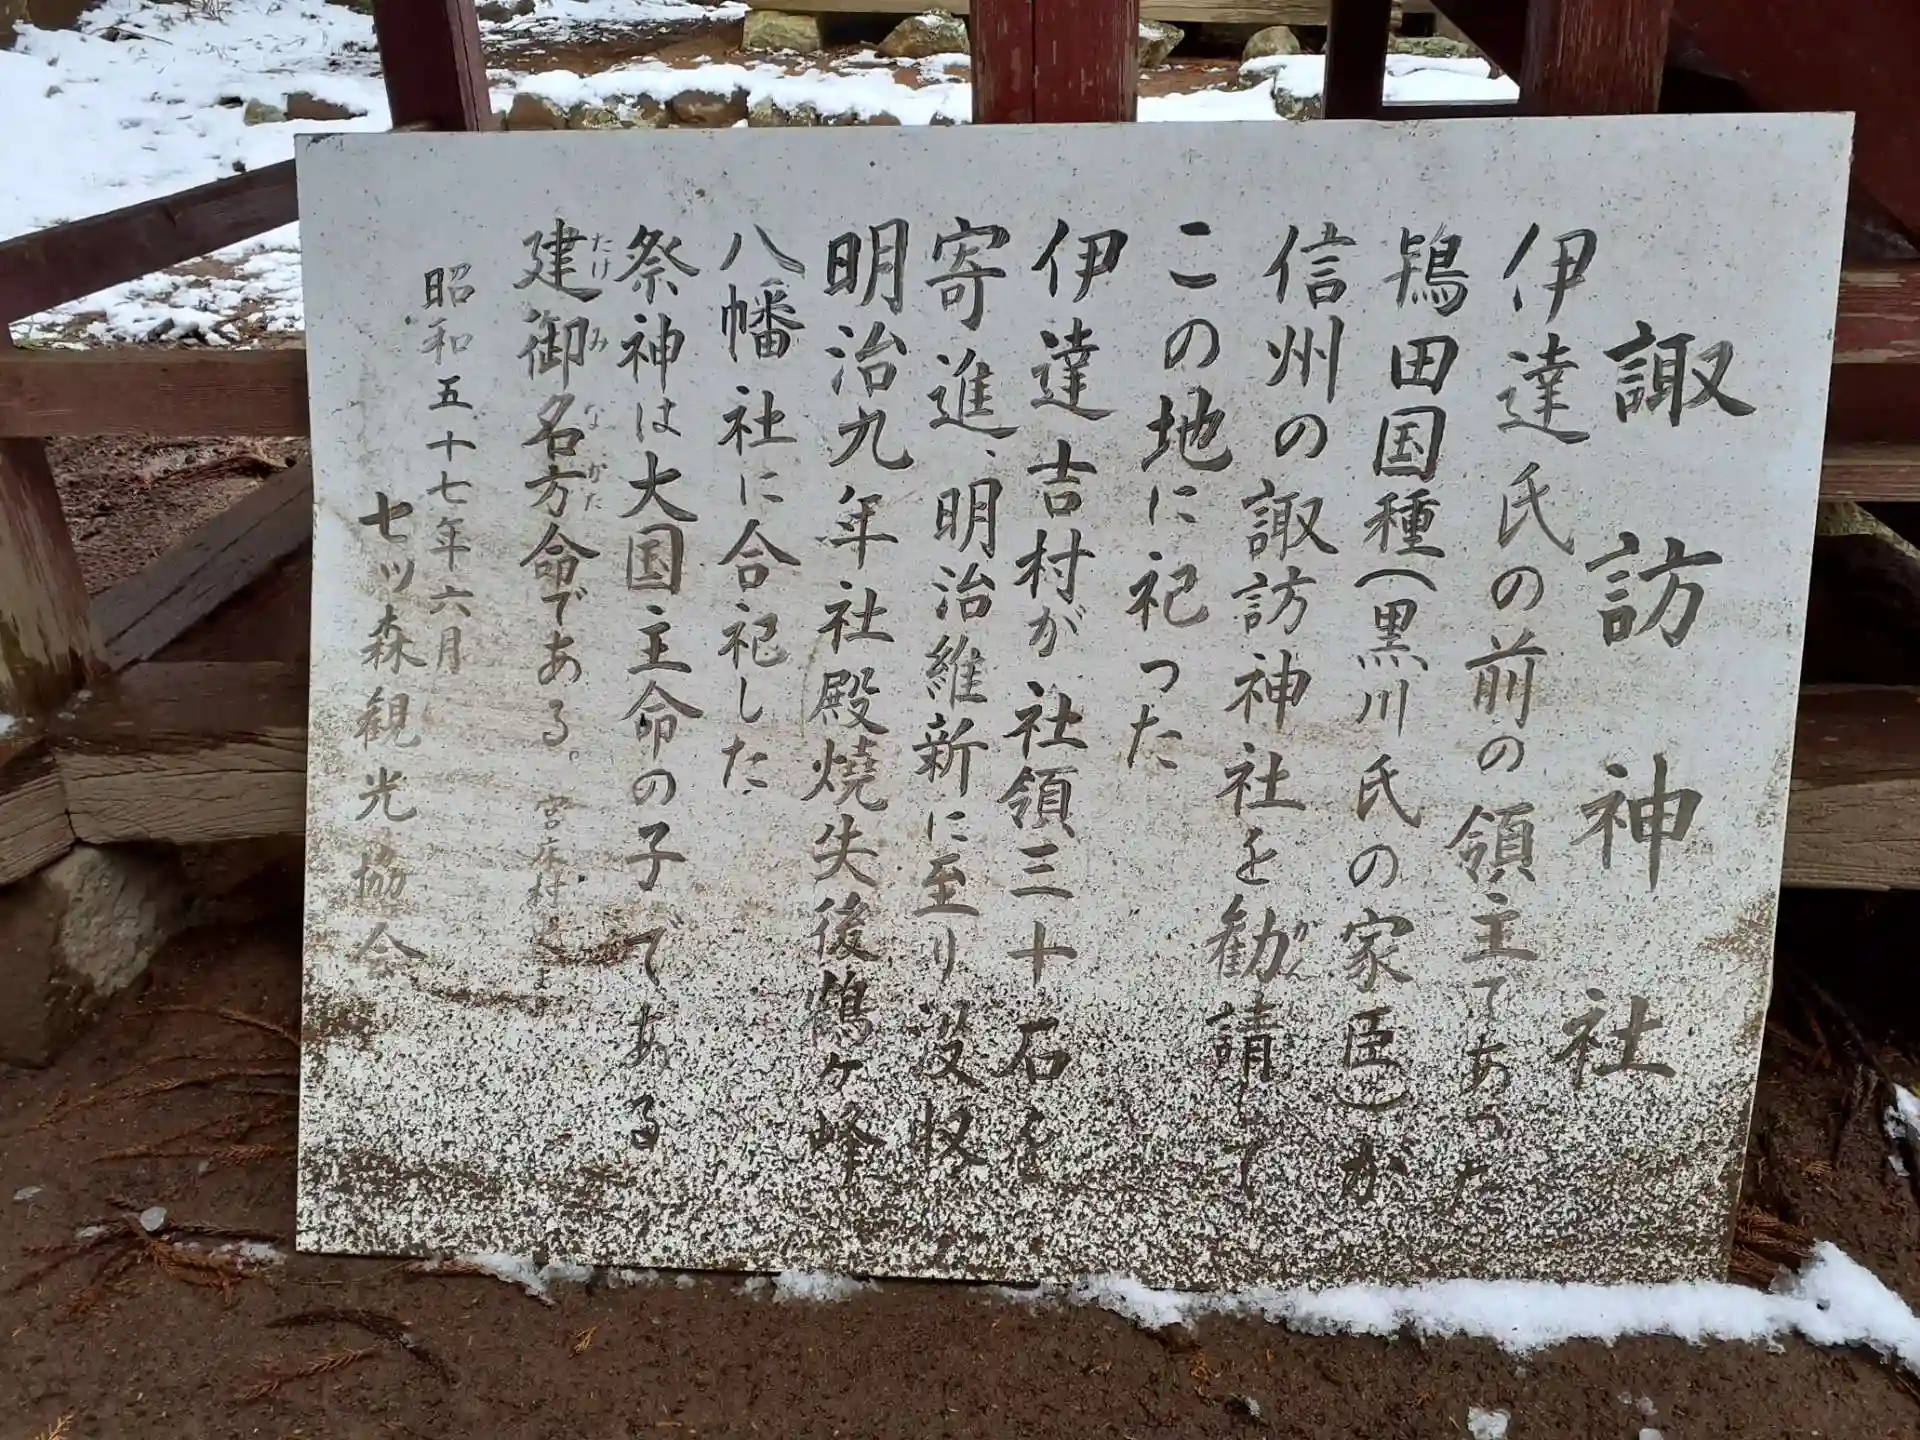 諏訪神社
伊達氏の前の領主であった
鴇田国種(黒川氏の家臣)が
信州の諏訪神社を勧請して
かん
この地に祀った
伊達吉村が社領三十石を
寄進、明治維新に至り没収
明治九年社殿焼失後鶴ケ峰
八幡社に合祀した
祭神は大国主命の子である
建御名方命である。宮床村
たけみなかた
昭和五十七年六月
七ツ森観光協会